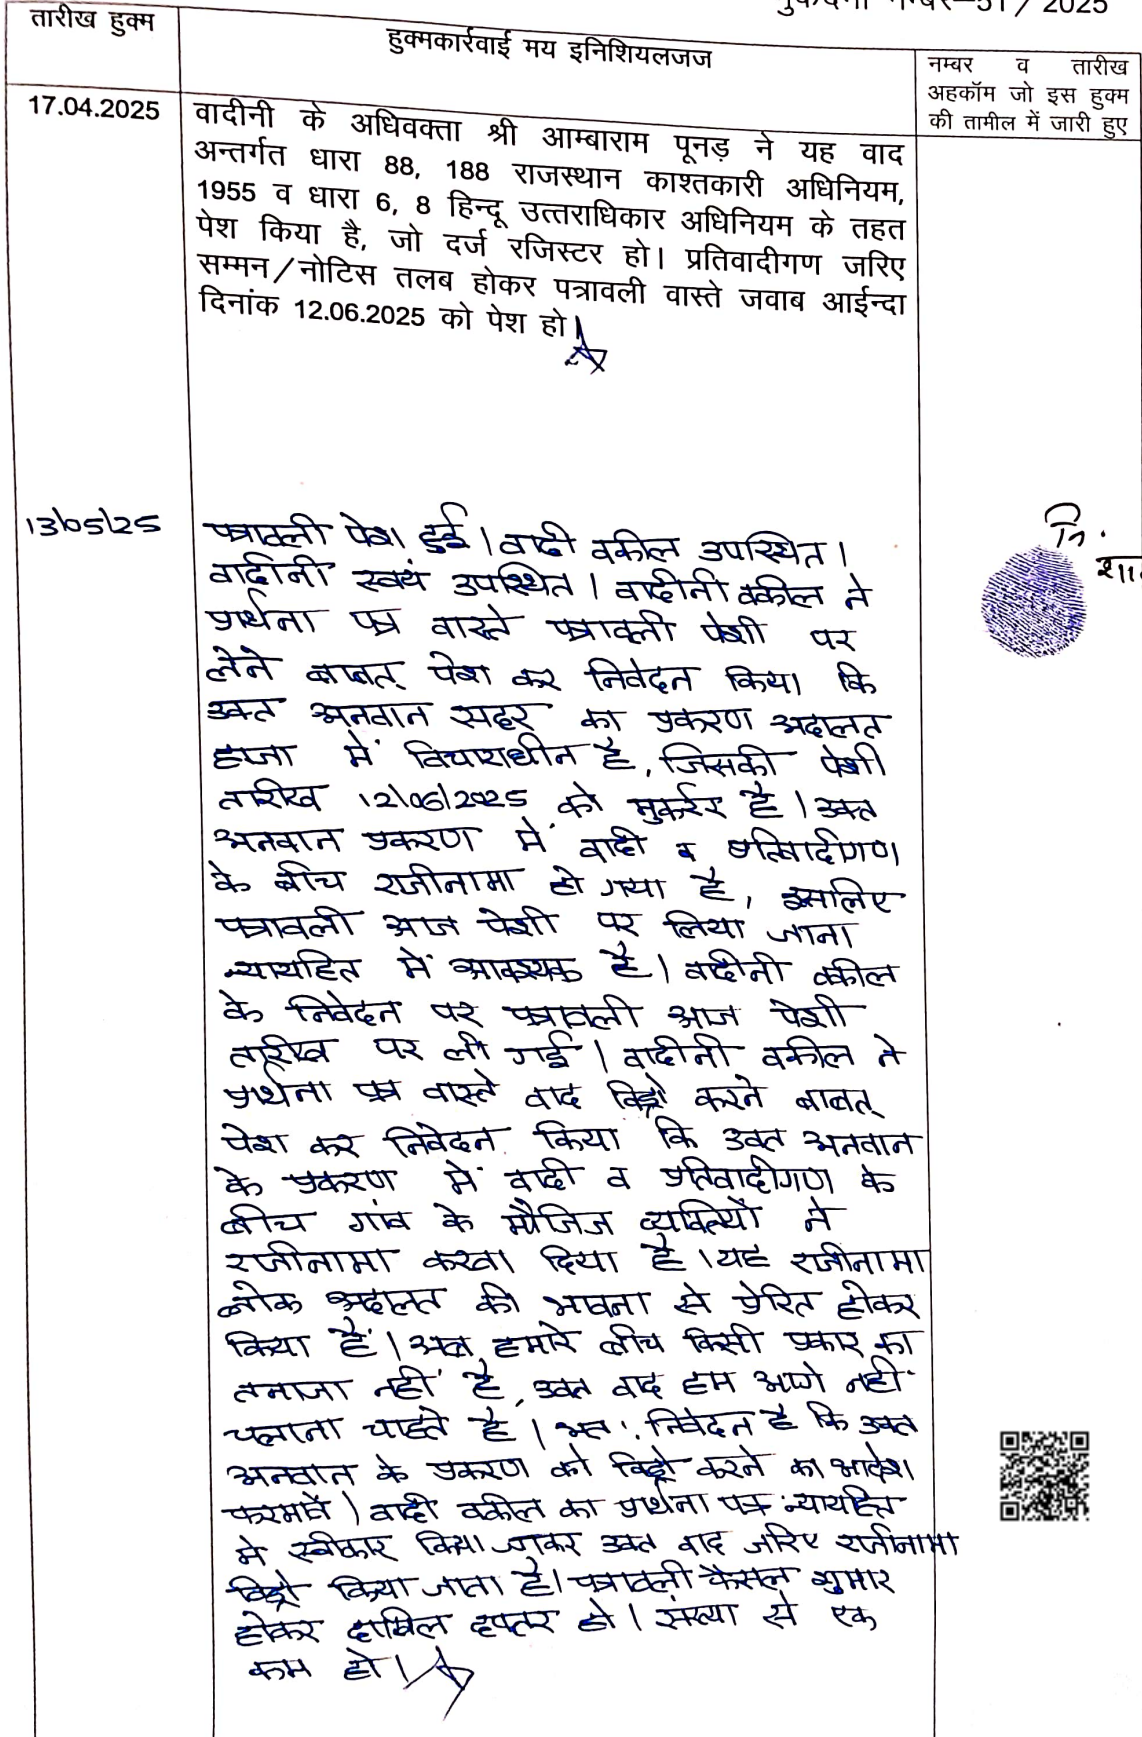 मुकदमा नम्बर–51 / 2025
तारीख हुक्म
हुक्मकार्रवाई मय इनिशियलजज
नम्बर व तारीख
अहकॉम जो इस हुक्म
की तामील में जारी हुए
17.04.2025
वादीनी के अधिवक्ता श्री आम्बाराम पूनड़ ने यह वाद
अन्तर्गत धारा 88, 188 राजस्थान काश्तकारी अधिनियम,
1955 व धारा 6, 8 हिन्दू उत्तराधिकार अधिनियम के तहत
पेश किया है, जो दर्ज रजिस्टर हो। प्रतिवादीगण जरिए
सम्मन/नोटिस तलब होकर पत्रावली वास्ते जवाब आईन्दा
दिनांक 12.06.2025 को पेश हो।
13/05/25
पत्रावली पेश हुई। वादी वकील उपस्थित।
वादीनी स्वयं उपस्थित। वादीनी वकील ने
प्रार्थना पत्र वास्ते पत्रावली पेशी पर
लेने बाबत् पेश कर निवेदन किया कि
उक्त अनवान सदर का प्रकरण अदालत
हाजा में विचाराधीन है, जिसकी पेशी
तारीख 12/06/2025 को मुकर्रर है। उक्त
अनवान प्रकरण में वादी व प्रतिवादीगण
के बीच राजीनामा हो गया है, इसलिए
पत्रावली आज पेशी पर लिया जाना
न्यायहित में आवश्यक है। वादीनी वकील
के निवेदन पर पत्रावली आज पेशी
तारीख पर ली गई। वादीनी वकील ने
प्रार्थना पत्र वास्ते वाद विड्रो करने बाबत्
पेश कर निवेदन किया कि उक्त अनवान
के प्रकरण में वादी व प्रतिवादीगण के
बीच गांव के मौजिज व्यक्तियों ने
राजीनामा करवा दिया है। यह राजीनामा
लोक अदालत की भावना से प्रेरित होकर
किया है। अब हमारे बीच किसी प्रकार का
तनाजा नहीं है, उक्त वाद हम आगे नहीं
चलाना चाहते है। अत: निवेदन है कि उक्त
अनवान के प्रकरण को विड्रो करने का आदेश
फरमावें। वादी वकील का प्रार्थना पत्र न्यायहित
में स्वीकार किया जाकर उक्त वाद जरिए राजीनामा
विड्रो किया जाता है। पत्रावली फैसल शुमार
होकर दाखिल दफ्तर हो। संख्या से एक
कम हो।
नि.